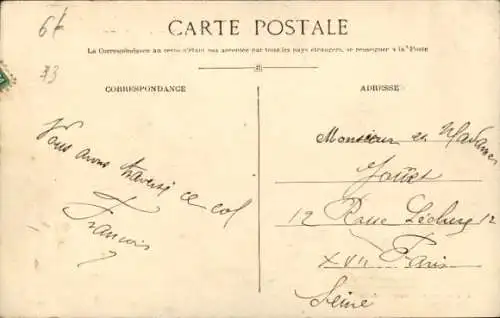 61
33
CARTE POSTALE
La Correspondance au verso n'étant pas acceptée par tous les pays étrangers, se renseigner à la Poste
CORRESPONDANCE
ADRESSE
Nous avons traversé ce col
François
Monsieur et Madame
12 Rue 12
XVII Paris
Seine